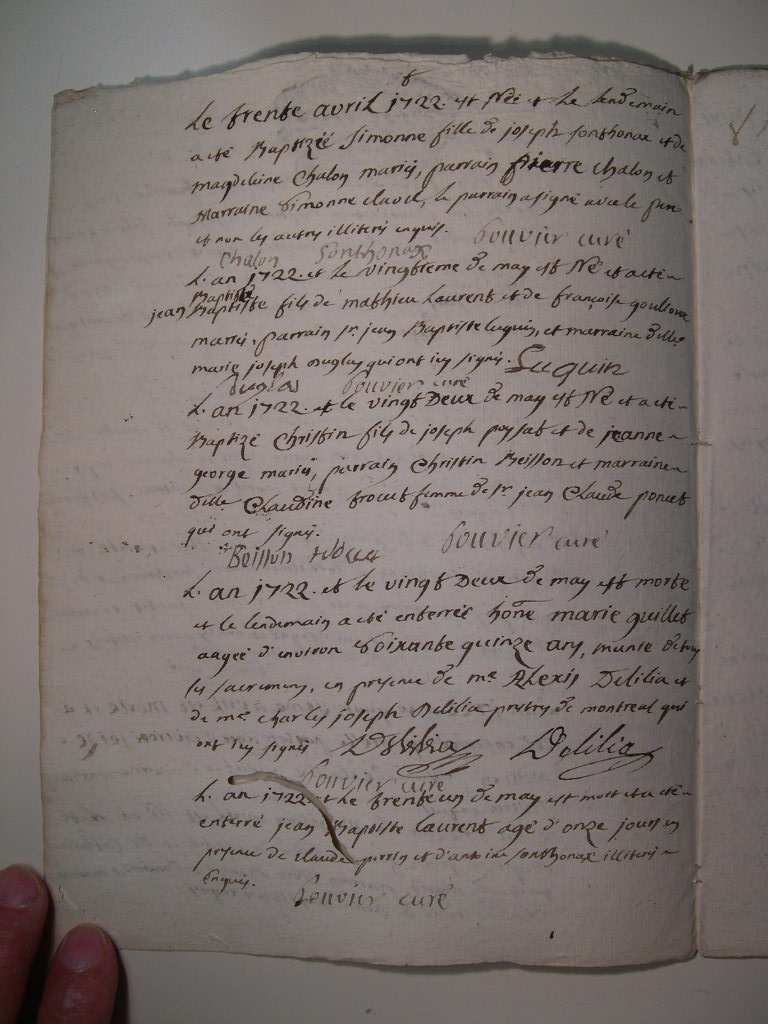 Le trente avril 1722. est Née et le lendemain
a eté Baptizéé Simonne fille de joseph sonthonax et de
magdeleine Chalon mariés, parrain pierre chalon et
Marraine Simonne clavel, le parrain a signé avec le
et non les autres illiterés enquis.
Chalon Sonthonax bouvier curé
L'an 1722. et le vingtieme de may est Né et a eté
Baptisé
jean Baptiste fils de mathieu Laurent et de françoise
mariés, parrain Sr. jean Baptiste Luquin, et marraine dlle
marie joseph qui ont icy signés. Luquin
bouvier curé
L'an 1722. et le vingt Deux de may est Né et a eté
Baptizé Christin fils de joseph et de jeanne
george mariés, parrain Christin Beisson et marraine
dlle Claudine femme de Sr. jean Claude poncet
qui ont signés.
Beisson bouvier curé
L'an 1722. et le vingt Deux de may est morte
et le lendemain a eté enterrée hone. marie guillet
aageé d'environ soixante quinze ans, munie de tous
les sacremens, en présence de me. Alexis Delilia et
de me. charles joseph Delilia prestre de montreal qui
ont icy signés Delilia Delilia
bouvier curé
L'an 1722. et le trente un de may est mort et a eté
enterré jean Baptiste laurent agé d'onze jours en
présence de claude perrin et d'antoine sonthonax illiterés
Enquis.
bouvier curé